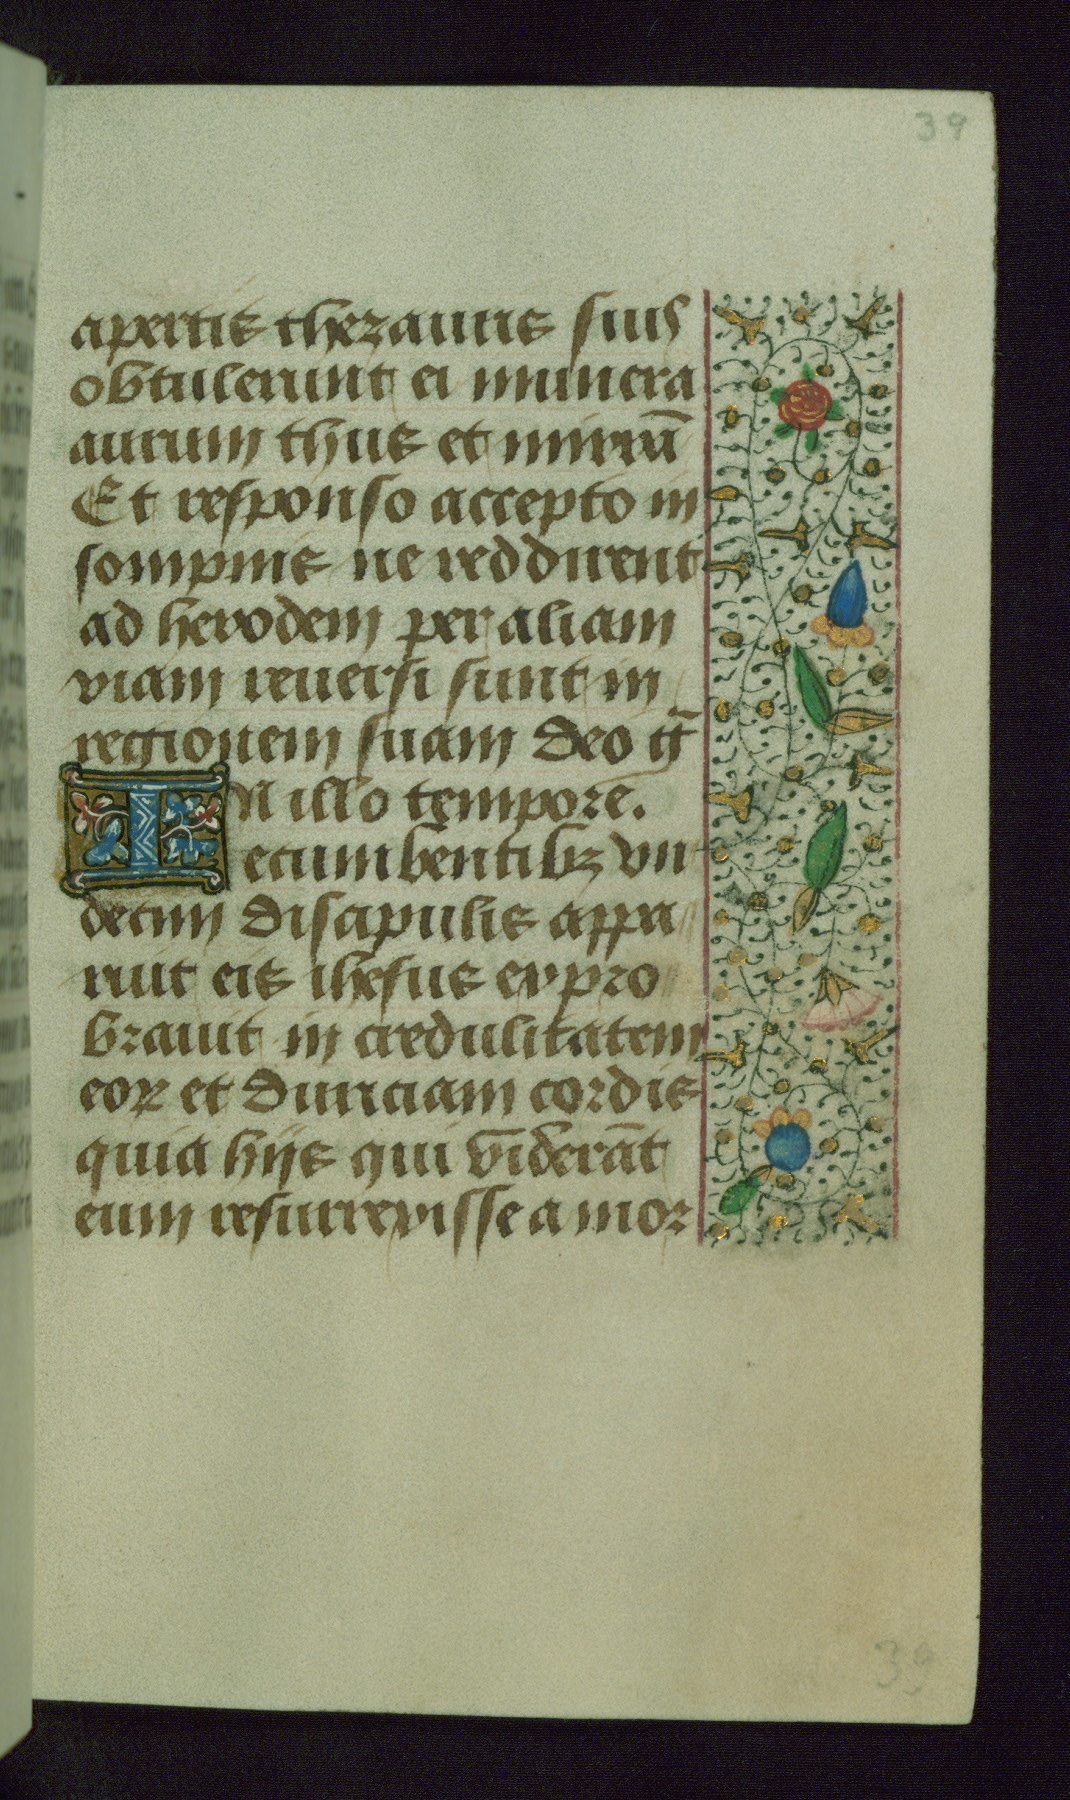 39
apertis thezauris suis
obtulerunt ei munera
aurum thus et mirrū
Et responso accepto in
sompnis ne reddirent
ad herodem per aliam
viam reuersi sunt in
regionem suam Deo gr̄
IN illo tempore.
recumbentibꝫ vn
decim discipulis appa
ruit eis ihesus expro
brauit in credulitatem
eoꝝ et duriciam cordis
quia hijs qui viderāt
eum resurrexisse a mor
39